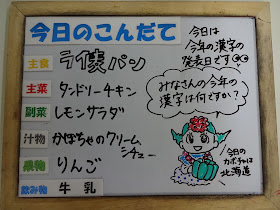 今日のこんだて
主食 ライ麦パン
主菜 タンドリーチキン
副菜 レモンサラダ
汁物 かぼちゃのクリームシチュー
果物 りんご
飲み物 牛乳
今日は
今年の漢字の
発表日です
みなさんの今年の
漢字は何ですか?
今日の
カボチャは
北海道